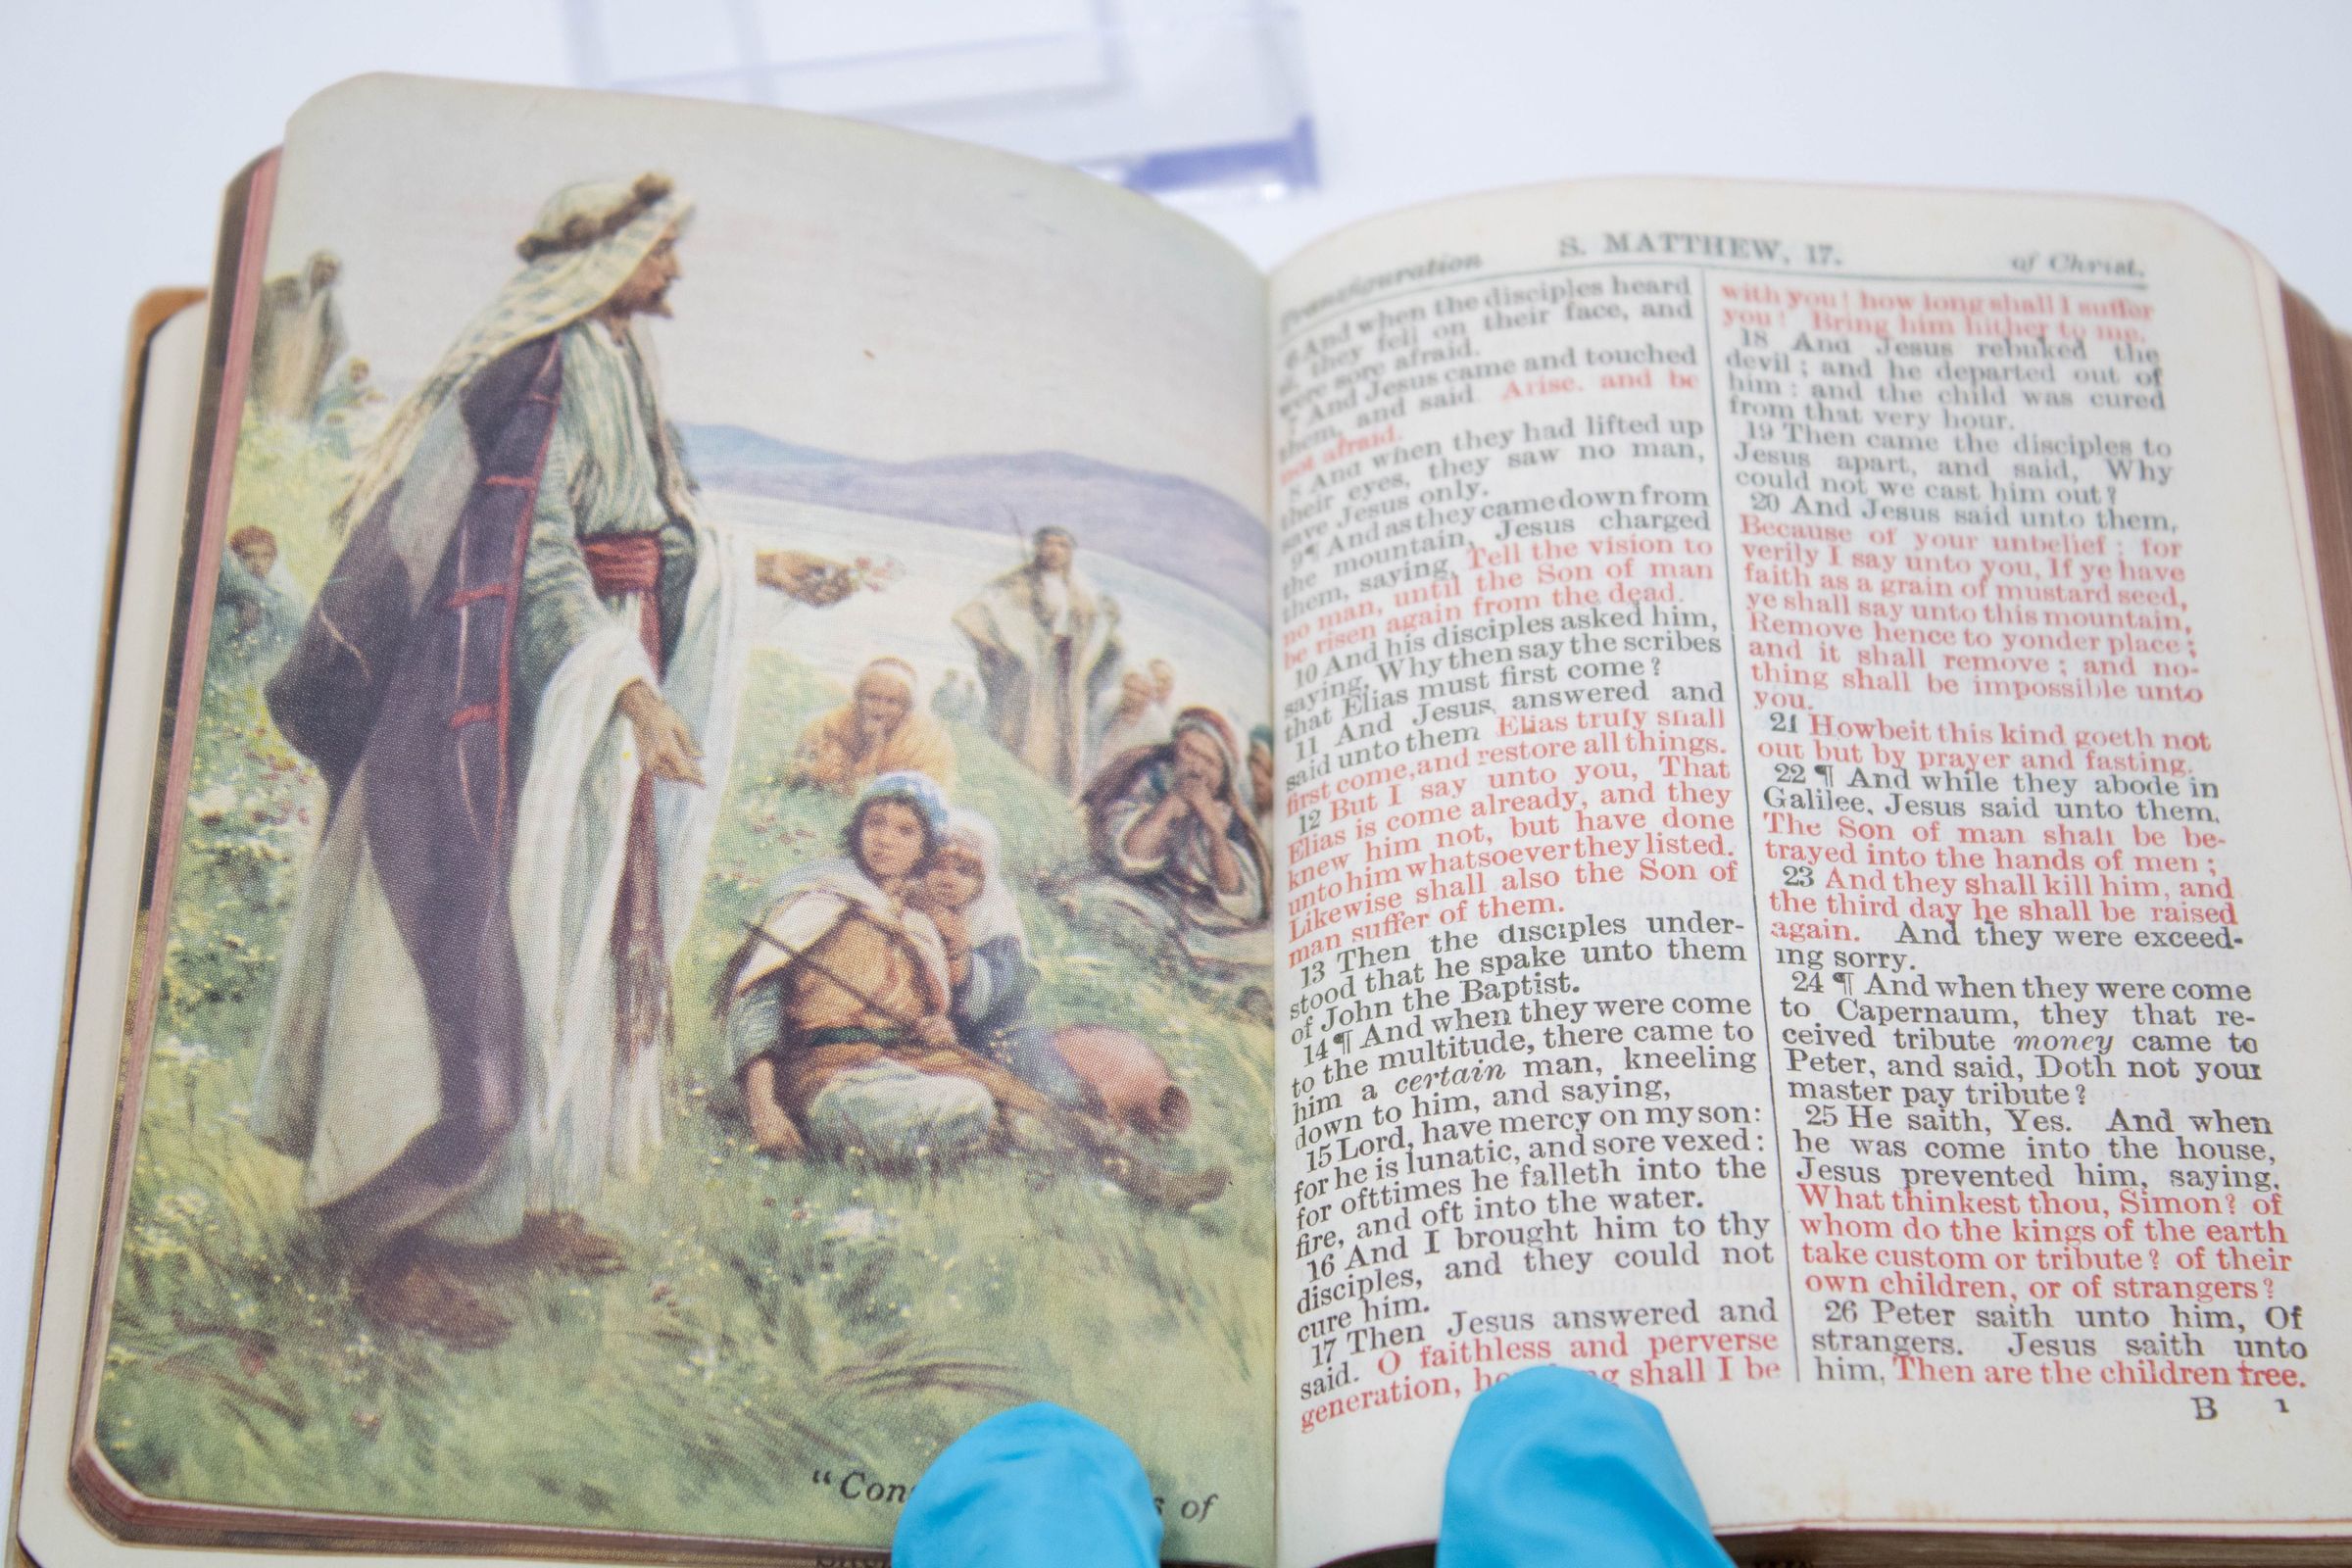 "Con of
S. MATTHEW, 17.
Transfiguration
of Christ.
6 And when the disciples heard
they fell on their face, and
were sore afraid.
7 And Jesus came and touched
them, and said Arise. and be
not afraid.
8 And when they had lifted up
their eyes, they saw no man,
save Jesus only.
9 ¶ And as they came down from
the mountain, Jesus charged
them, saying, Tell the vision to
no man, until the Son of man
be risen again from the dead.
10 And his disciples asked him,
saying, Why then say the scribes
that Elias must first come?
11 And Jesus answered and
said unto them Elias truly shall
first come, and restore all things.
12 But I say unto you, That
Elias is come already, and they
knew him not, but have done
unto him whatsoever they listed.
Likewise shall also the Son of
man suffer of them.
13 Then the disciples under-
stood that he spake unto them
of John the Baptist.
14 ¶ And when they were come
to the multitude, there came to
him a certain man, kneeling
down to him, and saying,
15 Lord, have mercy on my son:
for he is lunatic, and sore vexed:
for ofttimes he falleth into the
fire, and oft into the water.
16 And I brought him to thy
disciples, and they could not
cure him.
17 Then Jesus answered and
said. O faithless and perverse
generation, shall I be
with you! how long shall I suffer
you! Bring him hither to me.
18 And Jesus rebuked the
devil; and he departed out of
him: and the child was cured
from that very hour.
19 Then came the disciples to
Jesus apart, and said, Why
could not we cast him out?
20 And Jesus said unto them,
Because of your unbelief: for
verily I say unto you, If ye have
faith as a grain of mustard seed,
ye shall say unto this mountain,
Remove hence to yonder place;
and it shall remove; and no-
thing shall be impossible unto
you.
21 Howbeit this kind goeth not
out but by prayer and fasting.
22 ¶ And while they abode in
Galilee, Jesus said unto them,
The Son of man shall be be-
trayed into the hands of men;
23 And they shall kill him, and
the third day he shall be raised
again. And they were exceed-
ing sorry.
24 ¶ And when they were come
to Capernaum, they that re-
ceived tribute money came to
Peter, and said, Doth not your
master pay tribute?
25 He saith, Yes. And when
he was come into the house,
Jesus prevented him, saying,
What thinkest thou, Simon? of
whom do the kings of the earth
take custom or tribute? of their
own children, or of strangers?
26 Peter saith unto him, Of
strangers. Jesus saith unto
him, Then are the children free.
B 1